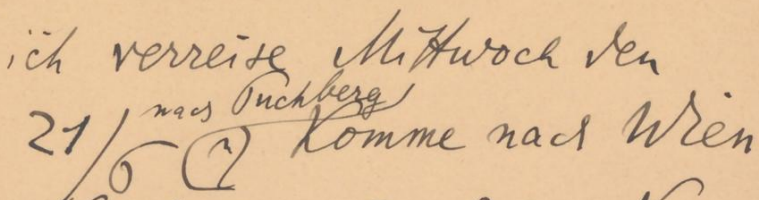 ich verreise Mittwoch den
nach Puchberg
21/6 (?) Komme nach Wien